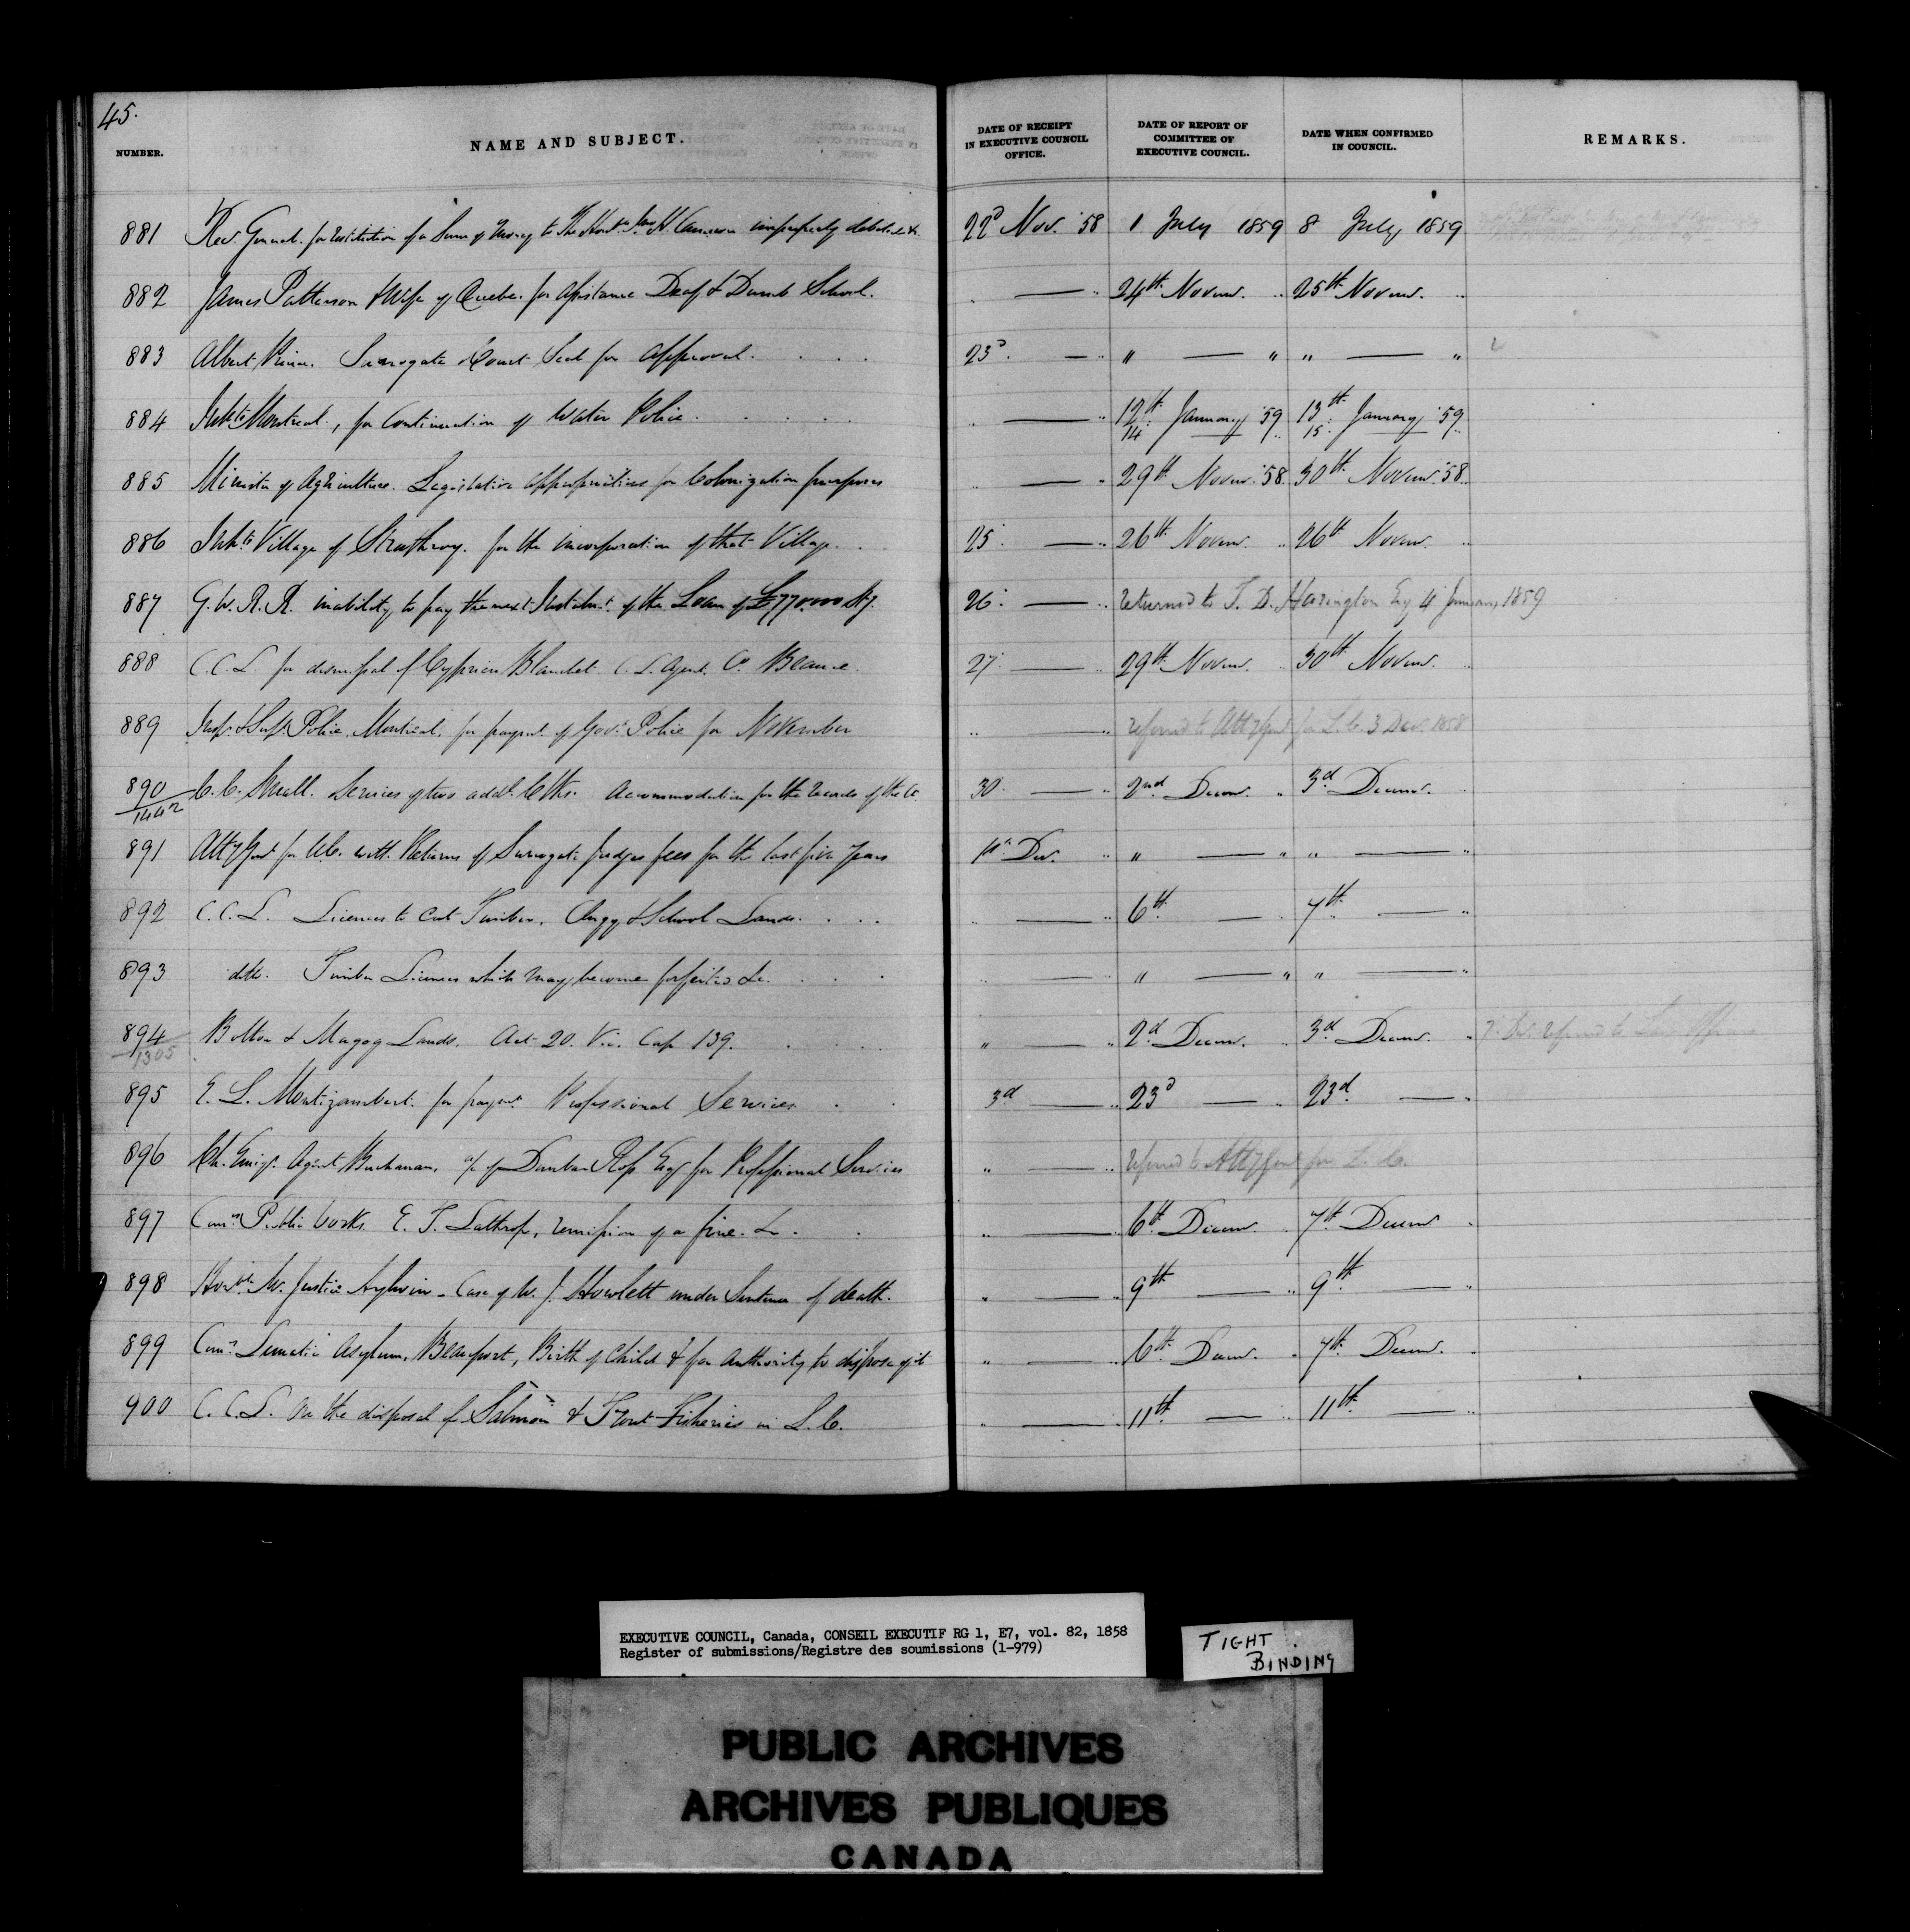 45.
NUMBER. NAME AND SUBJECT. DATE OF RECEIPT IN EXECUTIVE COUNCIL OFFICE. DATE OF REPORT OF COMMITTEE OF EXECUTIVE COUNCIL. DATE WHEN CONFIRMED IN COUNCIL. REMARKS.
881 Rec. General. for restitution of a Sum of money to The Honble. H. Cameron improperly 22d Nov. '58 1 July 1859 8 July 1859
882 James Patterson & Wife of Quebec for assistance Deaf & Dumb School. " — " 24th Novemr. " 25th Novemr. "
883 Albert Surrogate Court Seal for approval. 23d. — " " — " " — "
884 Inhts Montreal, for Continuation of Water Police. " — " 12th. 14 January '59 13th. 15 January '59
885 Minister of Agriculture. Legislative appropriations for Colonization purposes " — " 29th Novemr. '58 30th Novemr. '58
886 Inhts Village of Strathroy. for the incorporation of that Village. 25. — " 26th Novemr. " 26th Novemr. "
887 G. W. R. R. inability to pay the next Instalmt. of the Loan of £770,000 Stg. 26. — " returned to T. D. Harington Esq 4 January 1859
888 C. C. L. for dismissal of Cyprien Blanchet C. L. Agent. Co. Beauce. 27. — 29th Novemr. " 30th Novemr. "
889 Insp. & Supt. Police, Montreal, for paymt. of Govt. Police for November " — " referred to Atty Genl for L. C. 3 Decr. 1858
890/1442 C. C. Small. Services of two addl. Clks. Accommodation for the records of the Ct. 30. — " 2nd Decemr. " 3d. Decemr.
891 Atty Genl for U.C. with Returns of Surrogate Judges fees for the last five years 1st. Dec. " " — " " — "
892 C. C. L. Licenses to cut Timber, Clergy & School Lands. " — " 6th. — " 7th. — "
893 ditto. Timber Licenses which may become forfeited &c. " — " " — " " — "
894/1305 Bolton & Magog Lands. Act 20. Vic. Cap 139. " — " 2d. Decemr. " 3d. Decemr. " 7. Dec. referred to
895 E. L. Montizambert. for paymt. Professional Services 3d — " 23d — " 23d. — "
896 Ch. Emigt. Agent Buchanan, a/c of Dunbar Ross Esq for Professional Services " — " referred to Atty Genl for L. C.
897 Comrs. Public Works. E. T. Lathrop, remission of a fine. &c. " — " 6th. Decemr. " 7th. Decemr "
898 Honble. Mr. Justice Aylwin - Case of W. J. Howlett under Sentence of death. " — " 9th — " 9th. — "
899 Comrs. Lunatic Asylum, Beauport, Birth of Child & for authority to dispose of it " — " 6th. Decemr. " 7th. Decemr. "
900 C. C. L. on the disposal of Salmon & Trout Fisheries in L. C. " — " 11th. — " 11th. — "
EXECUTIVE COUNCIL, Canada, CONSEIL EXECUTIF RG 1, E7, vol. 82, 1858
Register of submissions/Registre des soumissions (1-979)
TIGHT
BINDING
PUBLIC ARCHIVES
ARCHIVES PUBLIQUES
CANADA